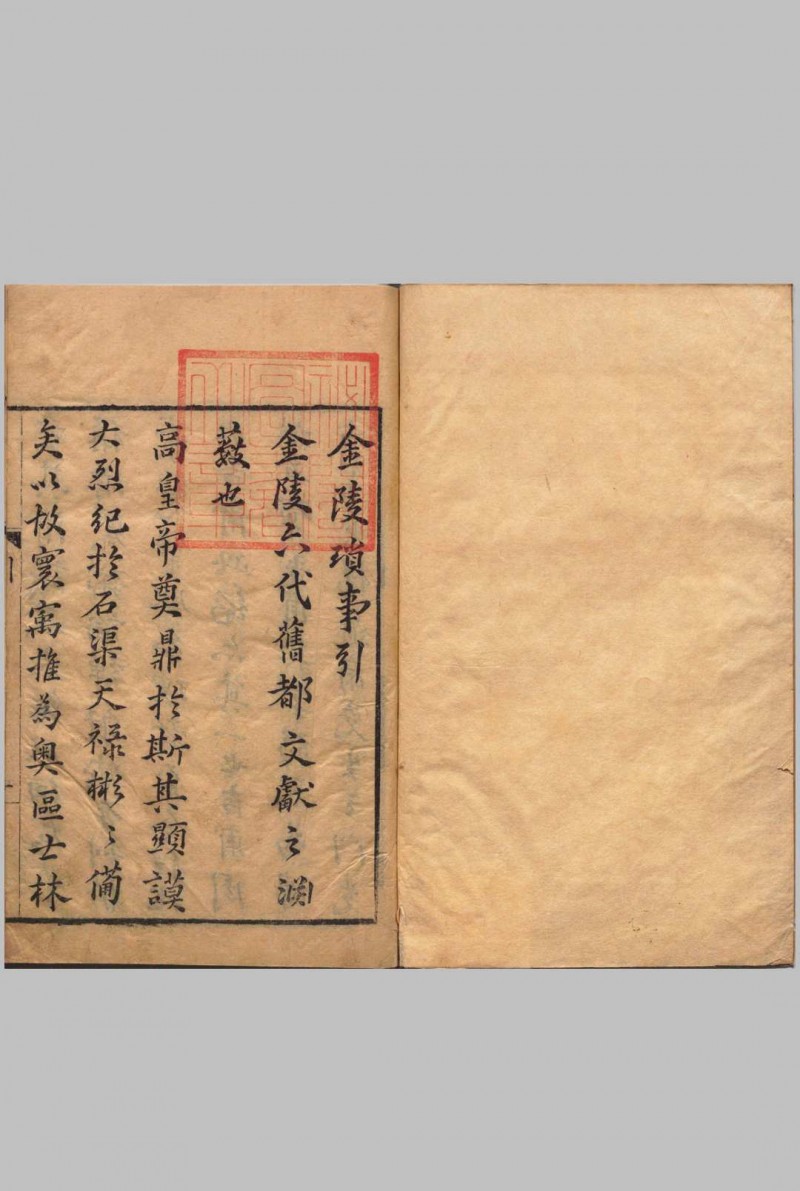 金陵瑣事引
金陵六代舊都文獻之淵
藪也
高皇帝奠鼎於斯其顯謨
大烈紀於石渠天祿彬〻備
矣以故寰寓推為奧區士林